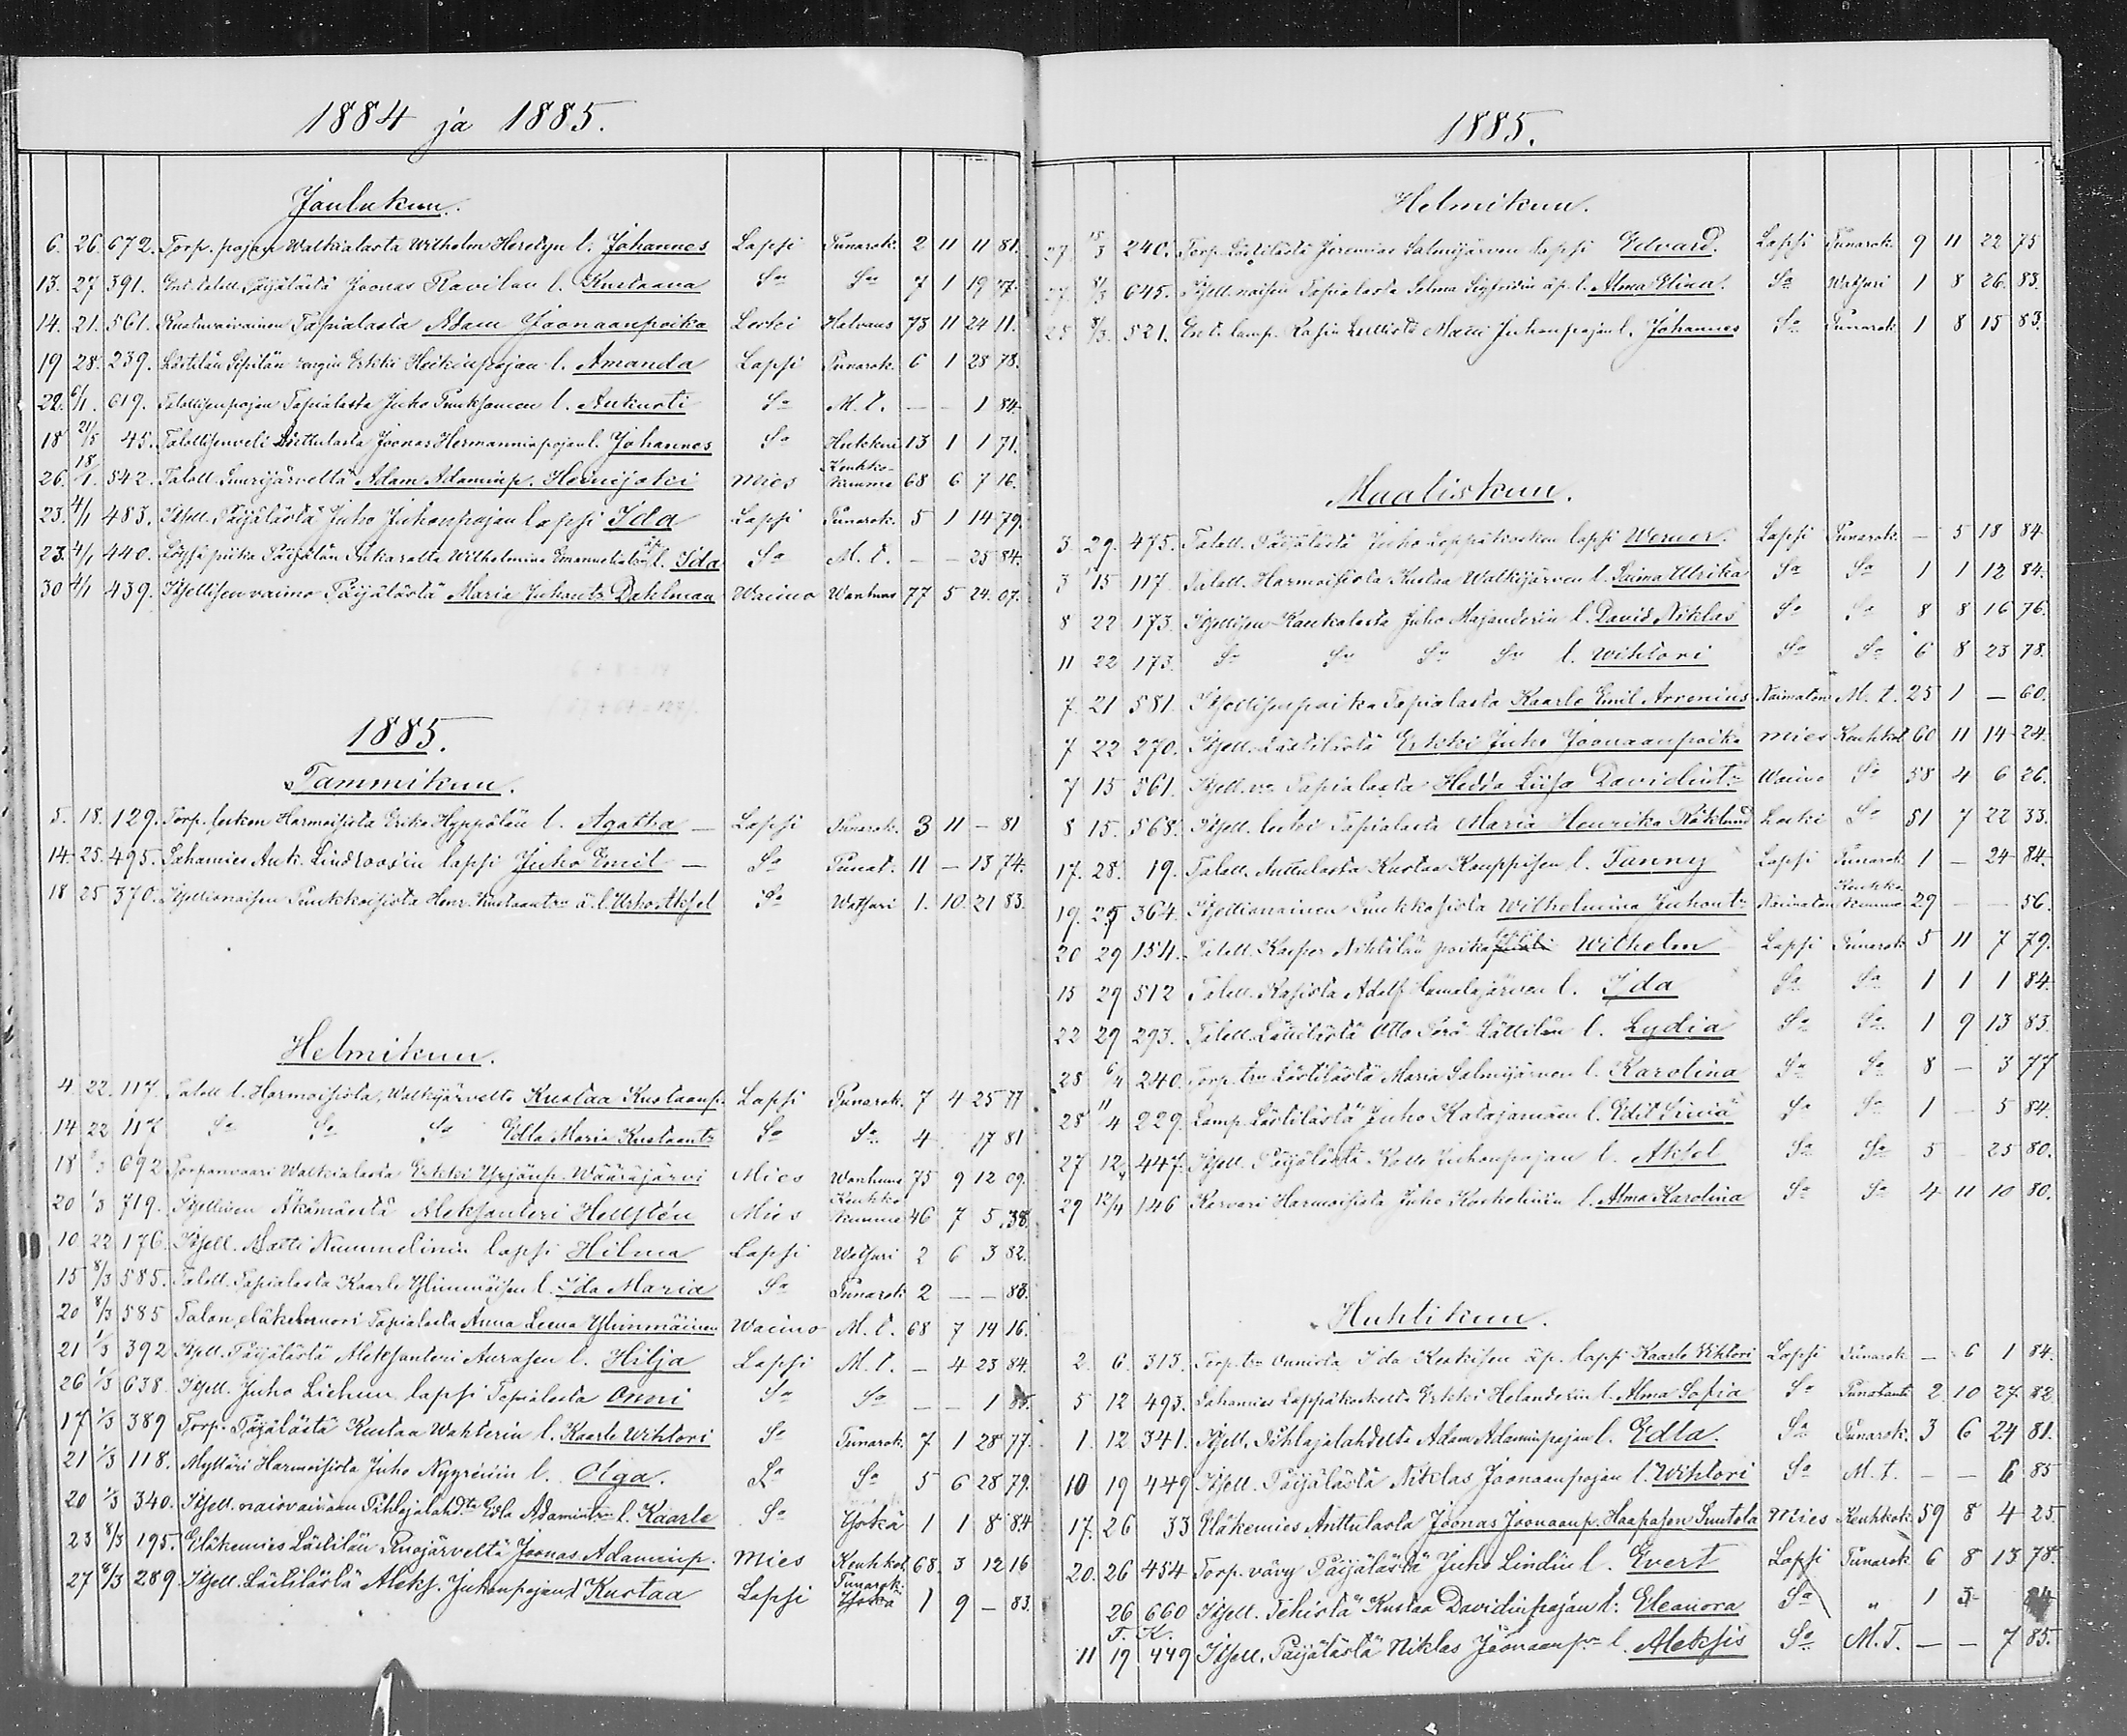 1884 ja 1885.
Joulukuu.
6. 26. 672. Torp. pojan Walkialasta Wilhelm Heredyn l. Johannes Lapsi Tunarok. 2 11 11 81.
13. 27 391. Päijälästä Joonas Ravilan l. Kustaava So So 7 1 19 77.
14. 21. 561. Ruotuvaivainen Tapialasta Adam Joonaanpoika Leski Halvaus 73 11 24 11.
19 28. 239. Lästilän Sipilän rengin Erkki Heikinpojan l. Amanda Lapsi Tunarok. 6 1 28 78.
22. 6/1. 619. Talollisenpojan Tapialasta Juho l. Aukusti So M. t. — — 1 84.
18 21/5 45. Talollisenveli Anttulasta Joonas Hermanninpojan l. Johannes So Hukkui 13 1 1 71.
26. 18/1. 542. Taloll. Suurijärveltä Adam Adaminp. Heinijoki Mies Keuhko-kuume 68 6 7 16.
23. 4/1 483. Itsell. Päijälästä Juho Juhonpojan lapsi Ida Lapsi Tunarok. 5 1 14 79.
23. 4/1 440. Löysä piika Päijälän Wilhelmina Emanuelintr. äp. l. Ida So M. t. — — 25 84.
30 4/1 439. Itsellisenvaimo Päijälästä Maria Juhontr Dahlman Waimo Wanhuus 77 5 24. 07.
1885.
Tammikuu.
5. 18. 129. Torp. lesken Harmoisista Erika Hyppölän l. Agatha — Lapsi Tunarok. 3 11 — 81
14. 25. 495. Sahamies Ant. Lindroosin lapsi Juho Emil — So Punat. 11 — 13 74.
18 25 370. Itsellisnaisen Puukkoisista Henr. Kustaantr ä. l. Urho Aksel So Watsuri 1. 10. 21 83.
Helmikuu.
4. 22. 117. Taloll l. Harmoisista, Walkijärveltä Kustaa Kustaanp. Lapsi Tunarok. 7 4 25 77
14 22 117 So So So Edla Maria Kustaantr So So 4 17 81
18 /3 692 Torpanvaari Walkialasta Erkki Yrjänp. Wääräjärvi Mies Wanhuus 75 9 12 09.
20 1/3 719. Itsellinen Äkämäestä Aleksanteri Hellstén Mies Keuhko kuume 46 7 5 38.
10 22 176. Itsell. Matti Nummelinin lapsi Hilma Lapsi Watsuri 2 6 3 82.
15 8/3 585. Taloll. Tapialasta Kaarle Ylinmäisen l. Ida Maria So Tunarok 2 — — 83.
20 8/3 585 Talon eläkemuori Tapialasta Anna Leena Ylinmäinen Waimo M. t. 68 7 14 16.
21 1/3 392 Itsell. Päijälästä Aleksanteri Aurasen l. Hilja Lapsi M. t. — 4 23 84.
26 1/3 638. Itsell. Juho Liehun lapsi Tapialasta Onni So So — — 1 85.
17 1/3 389 Torp. Päijälästä Kustaa Wahterin l. Kaarle Wihtori So Tunarok. 7 1 28 77.
21 1/3 118. Mylläri Harmoisista Juho Nygrenin l. Olga. So So 5 6 28 79.
20 1/3 340. Itsell. naisvaivaan Pihlajalahdta Edla Adamintr l. Kaarle So Yskä 1 1 8 84
23 8/3 195. Eläkemies Lästilän Ruojärveltä Joonas Adaminp. Mies Keuhkot. 68. 3 12 16
27 8/3 289 Itsell. Lästilästä Aleks. Juhonpojan l Kustaa Lapsi Tunarok. Yskä 1 9 — 83.
1885.
Helmikuu.
27 15/3 240. Torp. Lästilästä Jeremias Salmijärven lapsi Edvard. Lapsi Tunarok. 9 11 22 75
27 8/3 645. Itsell. naisen Tapialasta Selma Sigfridin äp. l. Alma Elina. So Watsuri 1 8 26. 83.
25 8/3. 521. lamp. Matti Juhonpojan l. Johannes So Tunarok 1 8 15 83.
Maaliskuu.
3. 29. 475. Taloll. Päijälästä Juho Leppäkosken lapsi Werner. Lapsi Tunarok. — 5 18 84.
3 15 117 Taloll. Harmoisista Kustaa Walkijärven l. Saima Ulrika So So 1 1 12 84.
8 22 173. Itsellisen Kaukalasta Juho Majanderin l. David Niklas So So 8 8 16 76.
11 22 173. So So So So l. Wihtori So So 6 8 23 78.
7. 21 581. Itsellisenpoika Tapialasta Kaarle Emil Arrenius Naimaton M. t. 25 1 — 60.
7 22 270. Itsell. Lästilästä Erkki Juho Joonaanpoika Mies Keuhkot 60 11 14 24.
7 15 561. Itsell. vo Tapialasta Hedda Liisa Davidintr Waimo So 58 4 6 26.
8 15. 568. Itsell. leski Tapialasta Maria Henrika Röklund Leski So 51 7 22 33.
17. 28. 19. Taloll. Anttulasta Kustaa Kauppisen l. Fanny Lapsi Tunarok 1 — 24 84.
19. 25 364. Itsellisnainen Puukkoisista Wilhelmina Juhontr Naimaton Keuhko kuume 29 — — 56.
20 29 154. Taloll. Kasper Nikkilän poika Wilhelm Lapsi Tunarok 5 11 7 79.
15 29 512 Taloll. Rapista Adolf Hamalajärven l. Ida So So 1 1 1 84.
22 29 293. Taloll. Lästilästä Otto Lättilän l. Lydia So So. 1 9 13 83.
28 6/4 240. Torp. tr Lästilästä Maria Salmijärven l. Karolina So So 8 — 3 77
28 11/4 229. Lamp. Lästilästä Juho Katajamäen l. Edit Siviä So So 1 — 5 84.
27 12/4 447. Itsell. Päijälästä Kalle Juhonpojan l. Aksel So So 5 — 25 80.
29 12/4 146 Karvari Harmoisista Juho Koskelinin l. Alma Karolina So So 4 11 10 80.
Huhtikuu.
2. 6. 313. Torp. tr Onnista Ida Keskisen äp. lapsi Kaarle Wihtori Lapsi Tunarok — 6 1 84.
5 12 493. Sahamies Leppäkoskelta Erkki Helanderin l. Alma Sofia So Punatauti 2 10 27 82
1. 12 341. Itsell. Pihlajalahdelta Adam Adaminpojan l. Edla. So Tunarok. 3 6 24 81.
10 19 449 Itsell. Päijälästä Niklas Joonaanpojan l. Wihtori So M. t. — — 6 85
17. 26 33 Eläkemies Anttulasta Joonas Joonaanp. Haapasen Suutela Mies Keuhkok. 59 8 4 25.
20. 26 454 Torp. vävy Päijälästä Juho Lindin l. Evert Lapsi Tunarok 6 8 13 78.
26 660 Itsell. Tehistä Kustaa Davidinpojan l. Eleanora So " 1 3 84
T. K.
11 19 449 Itsell. Päijälästä Niklas Joonaanpn l. Aleksis So M. T. — — 7 85.